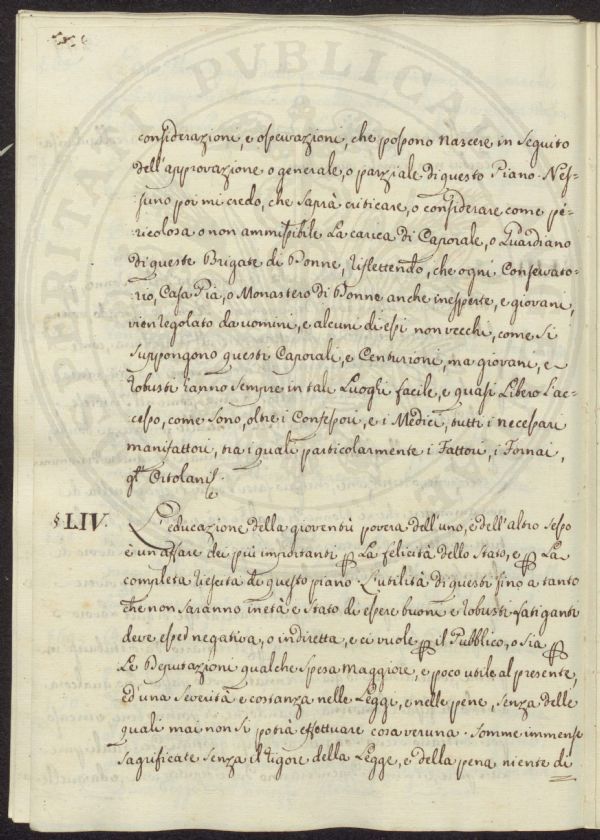 considerazione e osservazioni, che possono nascere in seguito
dell'approvazione o generale, o parziale di questo Piano. Nes=
suno poi mi credo, che saprà criticare, o considerare come pe=
ricolosa o non ammissibile La carica di Caporale, o Guardiano
di queste Brigate di Donne, riflettendo, che ogni Conservato=
rio, Casa Pia, o Monastero di Donne anche inesperte, e giovani,
vien regolato da uomini, e alcuni di essi non vecchi, come si
suppongono questi Caporali, e Centurioni, ma giovani, e
robusti hanno sempre in tali Luoghi facile, e quasi Libero L'ac=
cesso, come sono, oltre i Confessori, e i Medici, tutti i necessari
manifattori, tra i quali particolarmente i Fattori, i Fornai,
gl' Ortolani &c.
§ LIV. L'educazione della gioventù povera dell'uno, e dell'altro Sesso
è un affare dei più importanti per La felicità dello Stato, e per La
completa riescita di questo piano. L'utilità di questi fino a tanto
che non saranno in età e stato di essere buoni e robusti fatiganti
deve esser negativa, o indiretta, e ci vuole per il Pubblico, o sia per
La Deputazione qualche Spesa maggiore, e poco utile al presente,
ed una Severità e costanza nelle Leggi, e nelle pene, senza delle
quali mai non si potrà effettuare cosa veruna. Somme immense
sagrificate senza il rigore della Legge, e della pena niente di=
PERITATI PVBLICAE